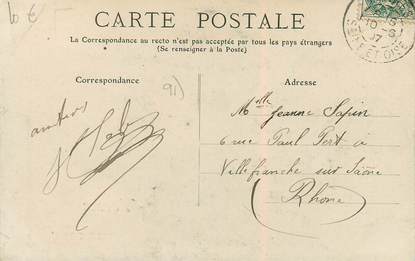 10 €
CARTE POSTALE
La Correspondance au recto n'est pas acceptée par tous les pays étrangers
(Se renseigner à la Poste)
SEINE ET OISE
Correspondance
91)
Adresse
amitiés
Mlle Jeanne Sapin
6 rue Paul Bert à
Villefranche sur Saône
(Rhône)